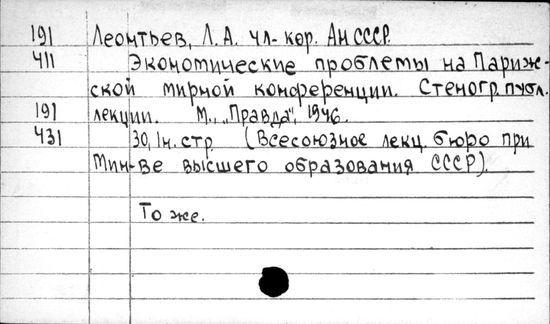 191 Леонтьев, Л.А. чл-кор. Ан СССР.
411 Экономические проблемы на Париж-
ской мирной конференции. Стеногр. публ.
191 лекции. М., „Правда", 1946.
431 30, 1н. стр. (Всесоюзное лекц. бюро при
Мин-ве высшего образования СССР).
То же.